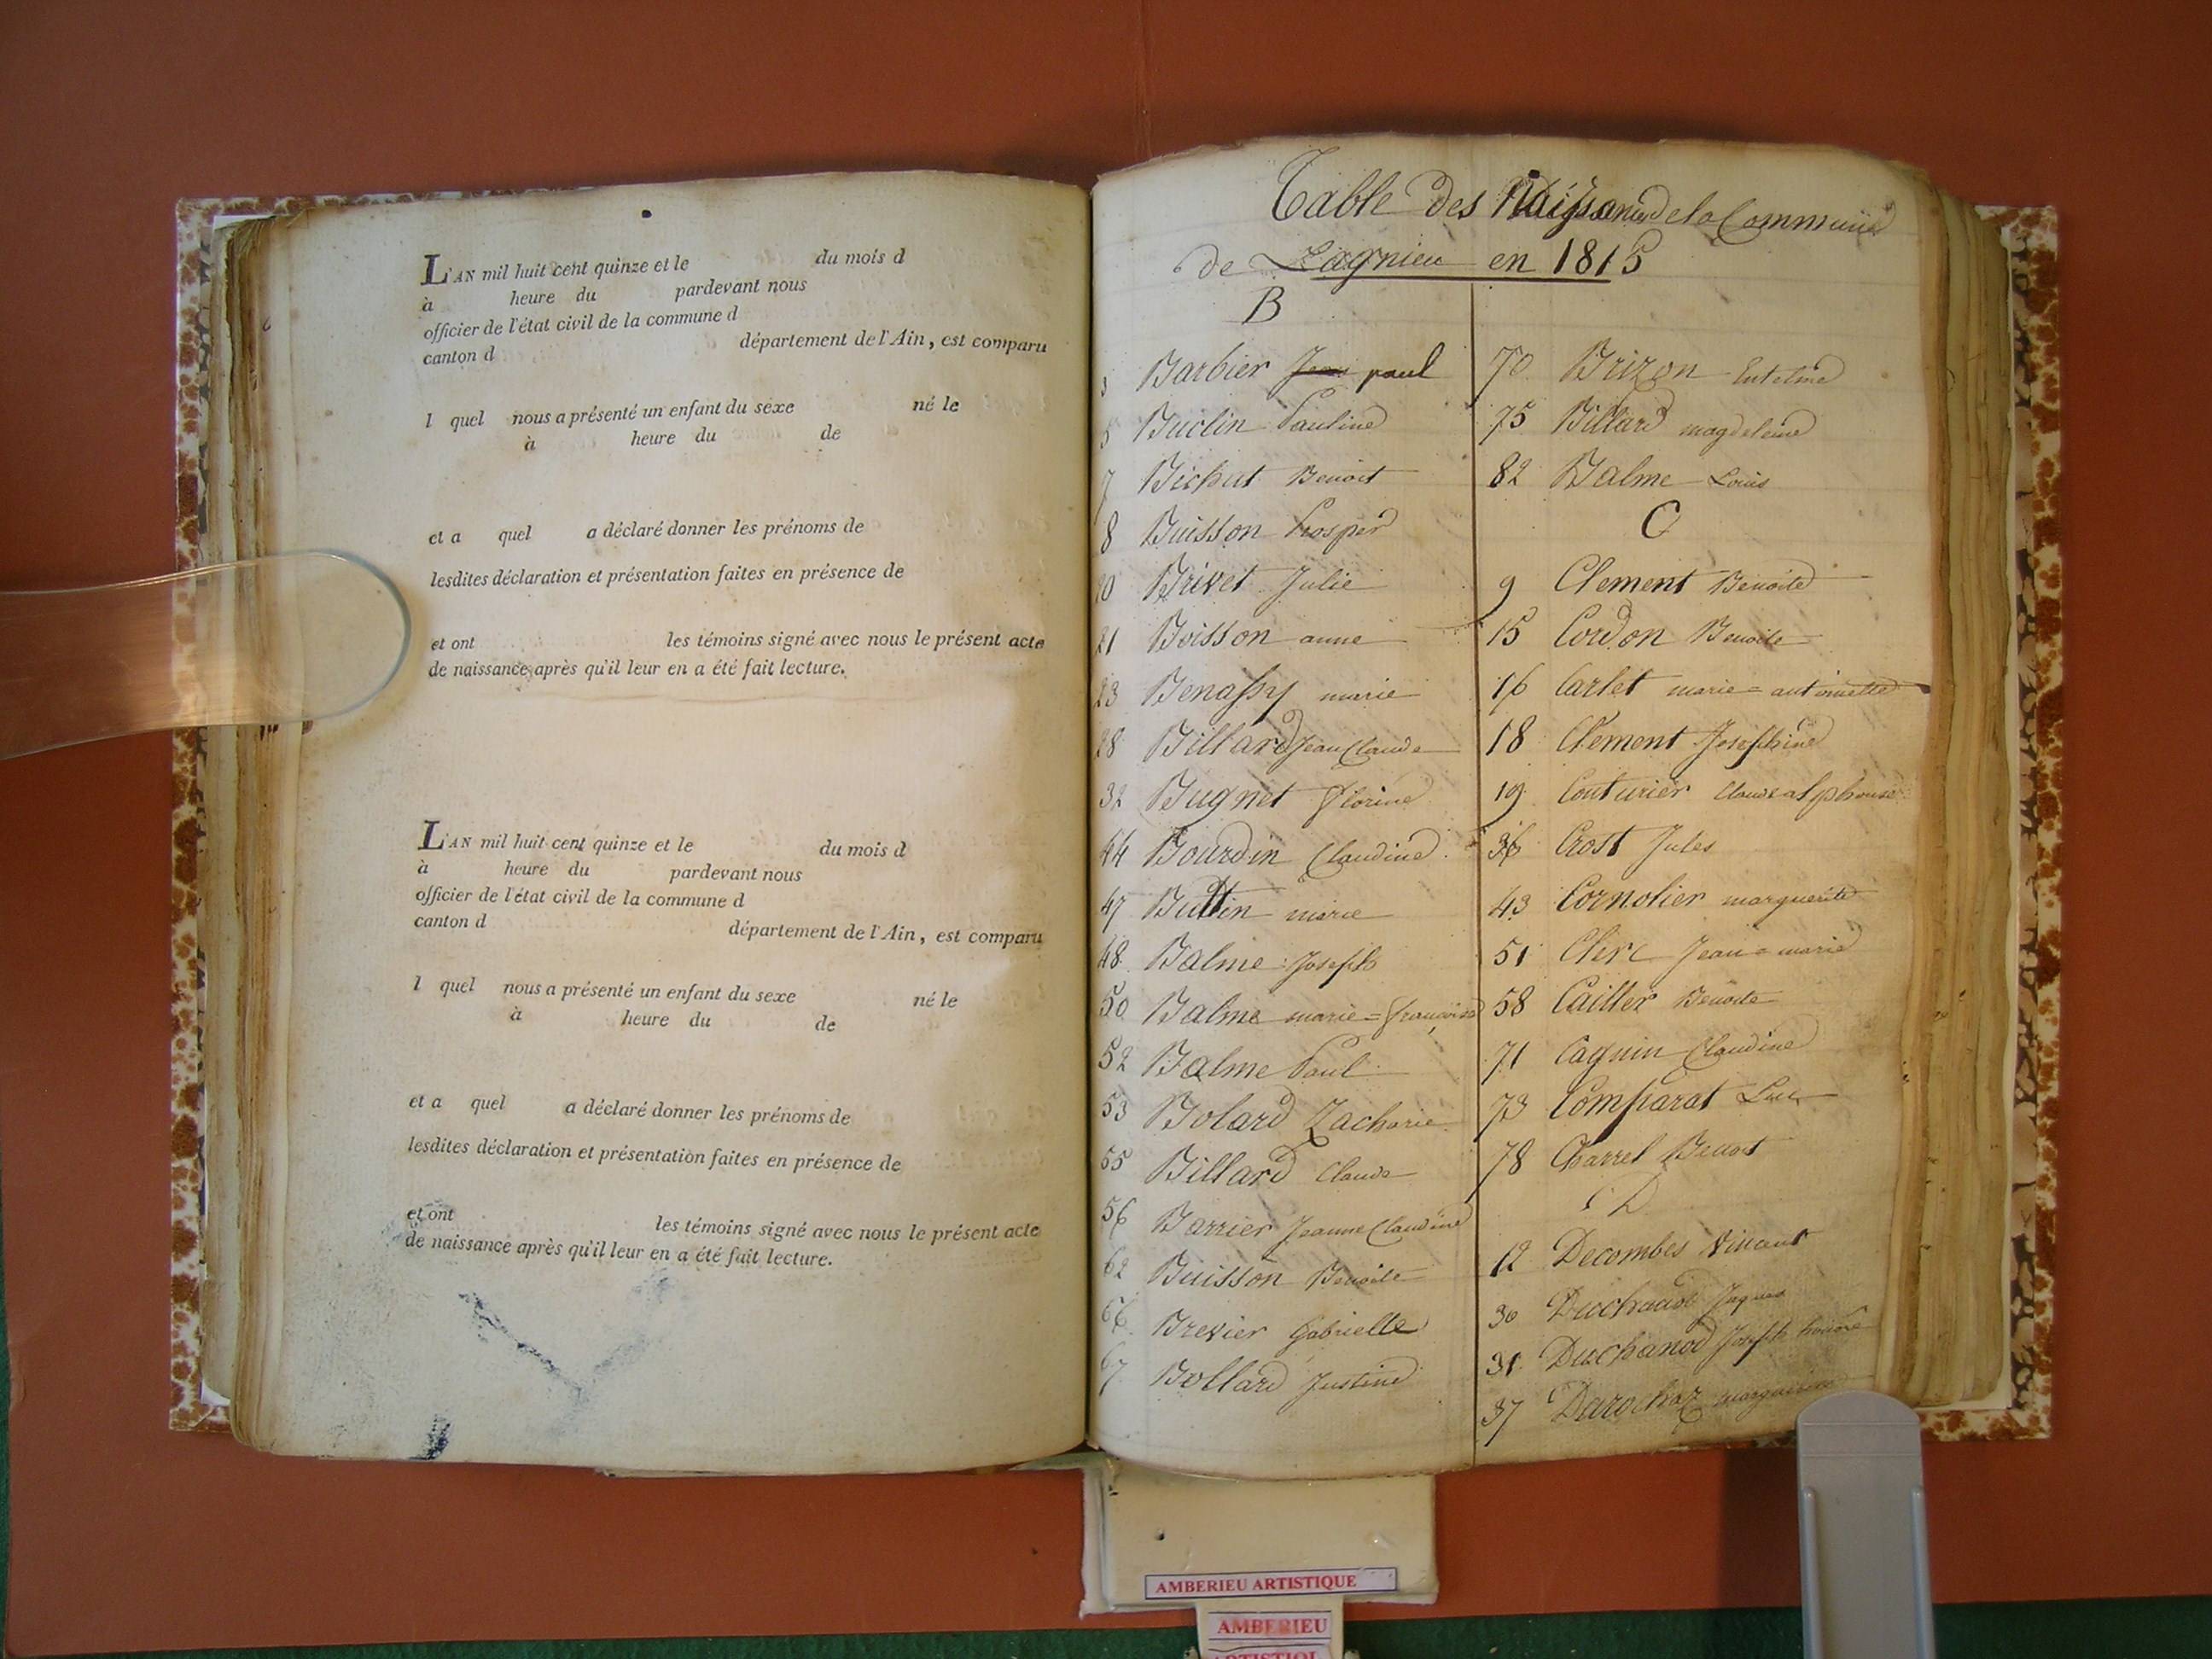 L'AN mil huit cent quinze et le du mois d
à heure du pardevant nous
officier de l'état civil de la commune d
canton d département de l'Ain, est comparu
l quel nous a présenté un enfant du sexe né le
à heure du de
et a quel a déclaré donner les prénoms de
lesdites déclaration et présentation faites en présence de
et ont les témoins signé avec nous le présent acte
de naissance, après qu'il leur en a été fait lecture.
L'AN mil huit cent quinze et le du mois d
à heure du pardevant nous
officier de l'état civil de la commune d
canton d département de l'Ain, est comparu
l quel nous a présenté un enfant du sexe né le
à heure du de
et a quel a déclaré donner les prénoms de
lesdites déclaration et présentation faites en présence de
et ont les témoins signé avec nous le présent acte
de naissance après qu'il leur en a été fait lecture.
Table des Naissances de la Commune
de Lagnieu en 1815
B
3 Barbier Jean paul
5 Buclin Pauline
7 Bichat Benoit
8 Buisson Prosper
10 Brivet Julie
21 Boisson anne
23 Benassy marie
28 Billard Jean Claude
32 Bugnet florine
44 Bourdin Claudine
47 Buttin marie
48 Balme Joseph
50 Balme marie=françoise
52 Balme Paul
53 Bolard Zacharie
55 Billard Claude
56 Barrier Jeanne Claudine
62 Buisson Benoite
66 Brevier Gabrielle
67 Bollard Justine
70 Brizon
75 Billard magdeleine
82 Balme Louis
C
9 Clement Benoite
15 Cordon Benoite
16 Carlet marie=antoinette
18 Clement Josephine
19 Couturier Claude alphonse
36 Crost Jules
43 Cornolier marguerite
51 Clerc Jean=marie
58 Cailler Benoite
71 Caguin Claudine
73 Comparat Luc
78 Charrel Benoit
D
12 Decombes Vincent
30 Duchanod Jaques
31 Duchanod Joseph honoré
37 Darochaz marguerite
AMBERIEU ARTISTIQUE
AMBERIEU